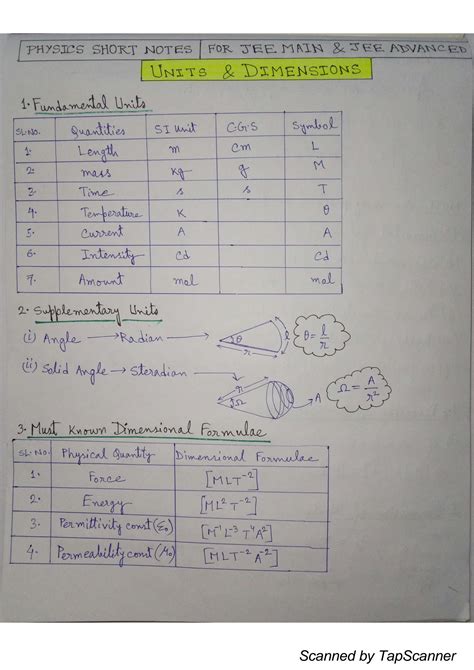 PHYSICS SHORT NOTES | FOR JEE MAIN & JEE ADVANCED
UNITS & DIMENSIONS
1. Fundamental Units
SL.NO. Quantities SI Unit C.G.S Symbol
1. Length m cm L
2. mass kg g M
3. Time s s T
4. Temperature K θ
5. Current A A
6. Intensity Cd Cd
7. Amount mol mol
2. Supplementary Units
(i) Angle → Radian → θ l r θ = l/r
(ii) Solid Angle → Steradian → r Ω A Ω = A/r²
3. Must Known Dimensional Formulae
SL.NO. Physical Quantity Dimensional Formulae
1. Force [MLT⁻²]
2. Energy [ML²T⁻²]
3. Permittivity const (ε₀) [M⁻¹L⁻³T⁴A²]
4. Permeability const (μ₀) [MLT⁻²A⁻²]
Scanned by TapScanner